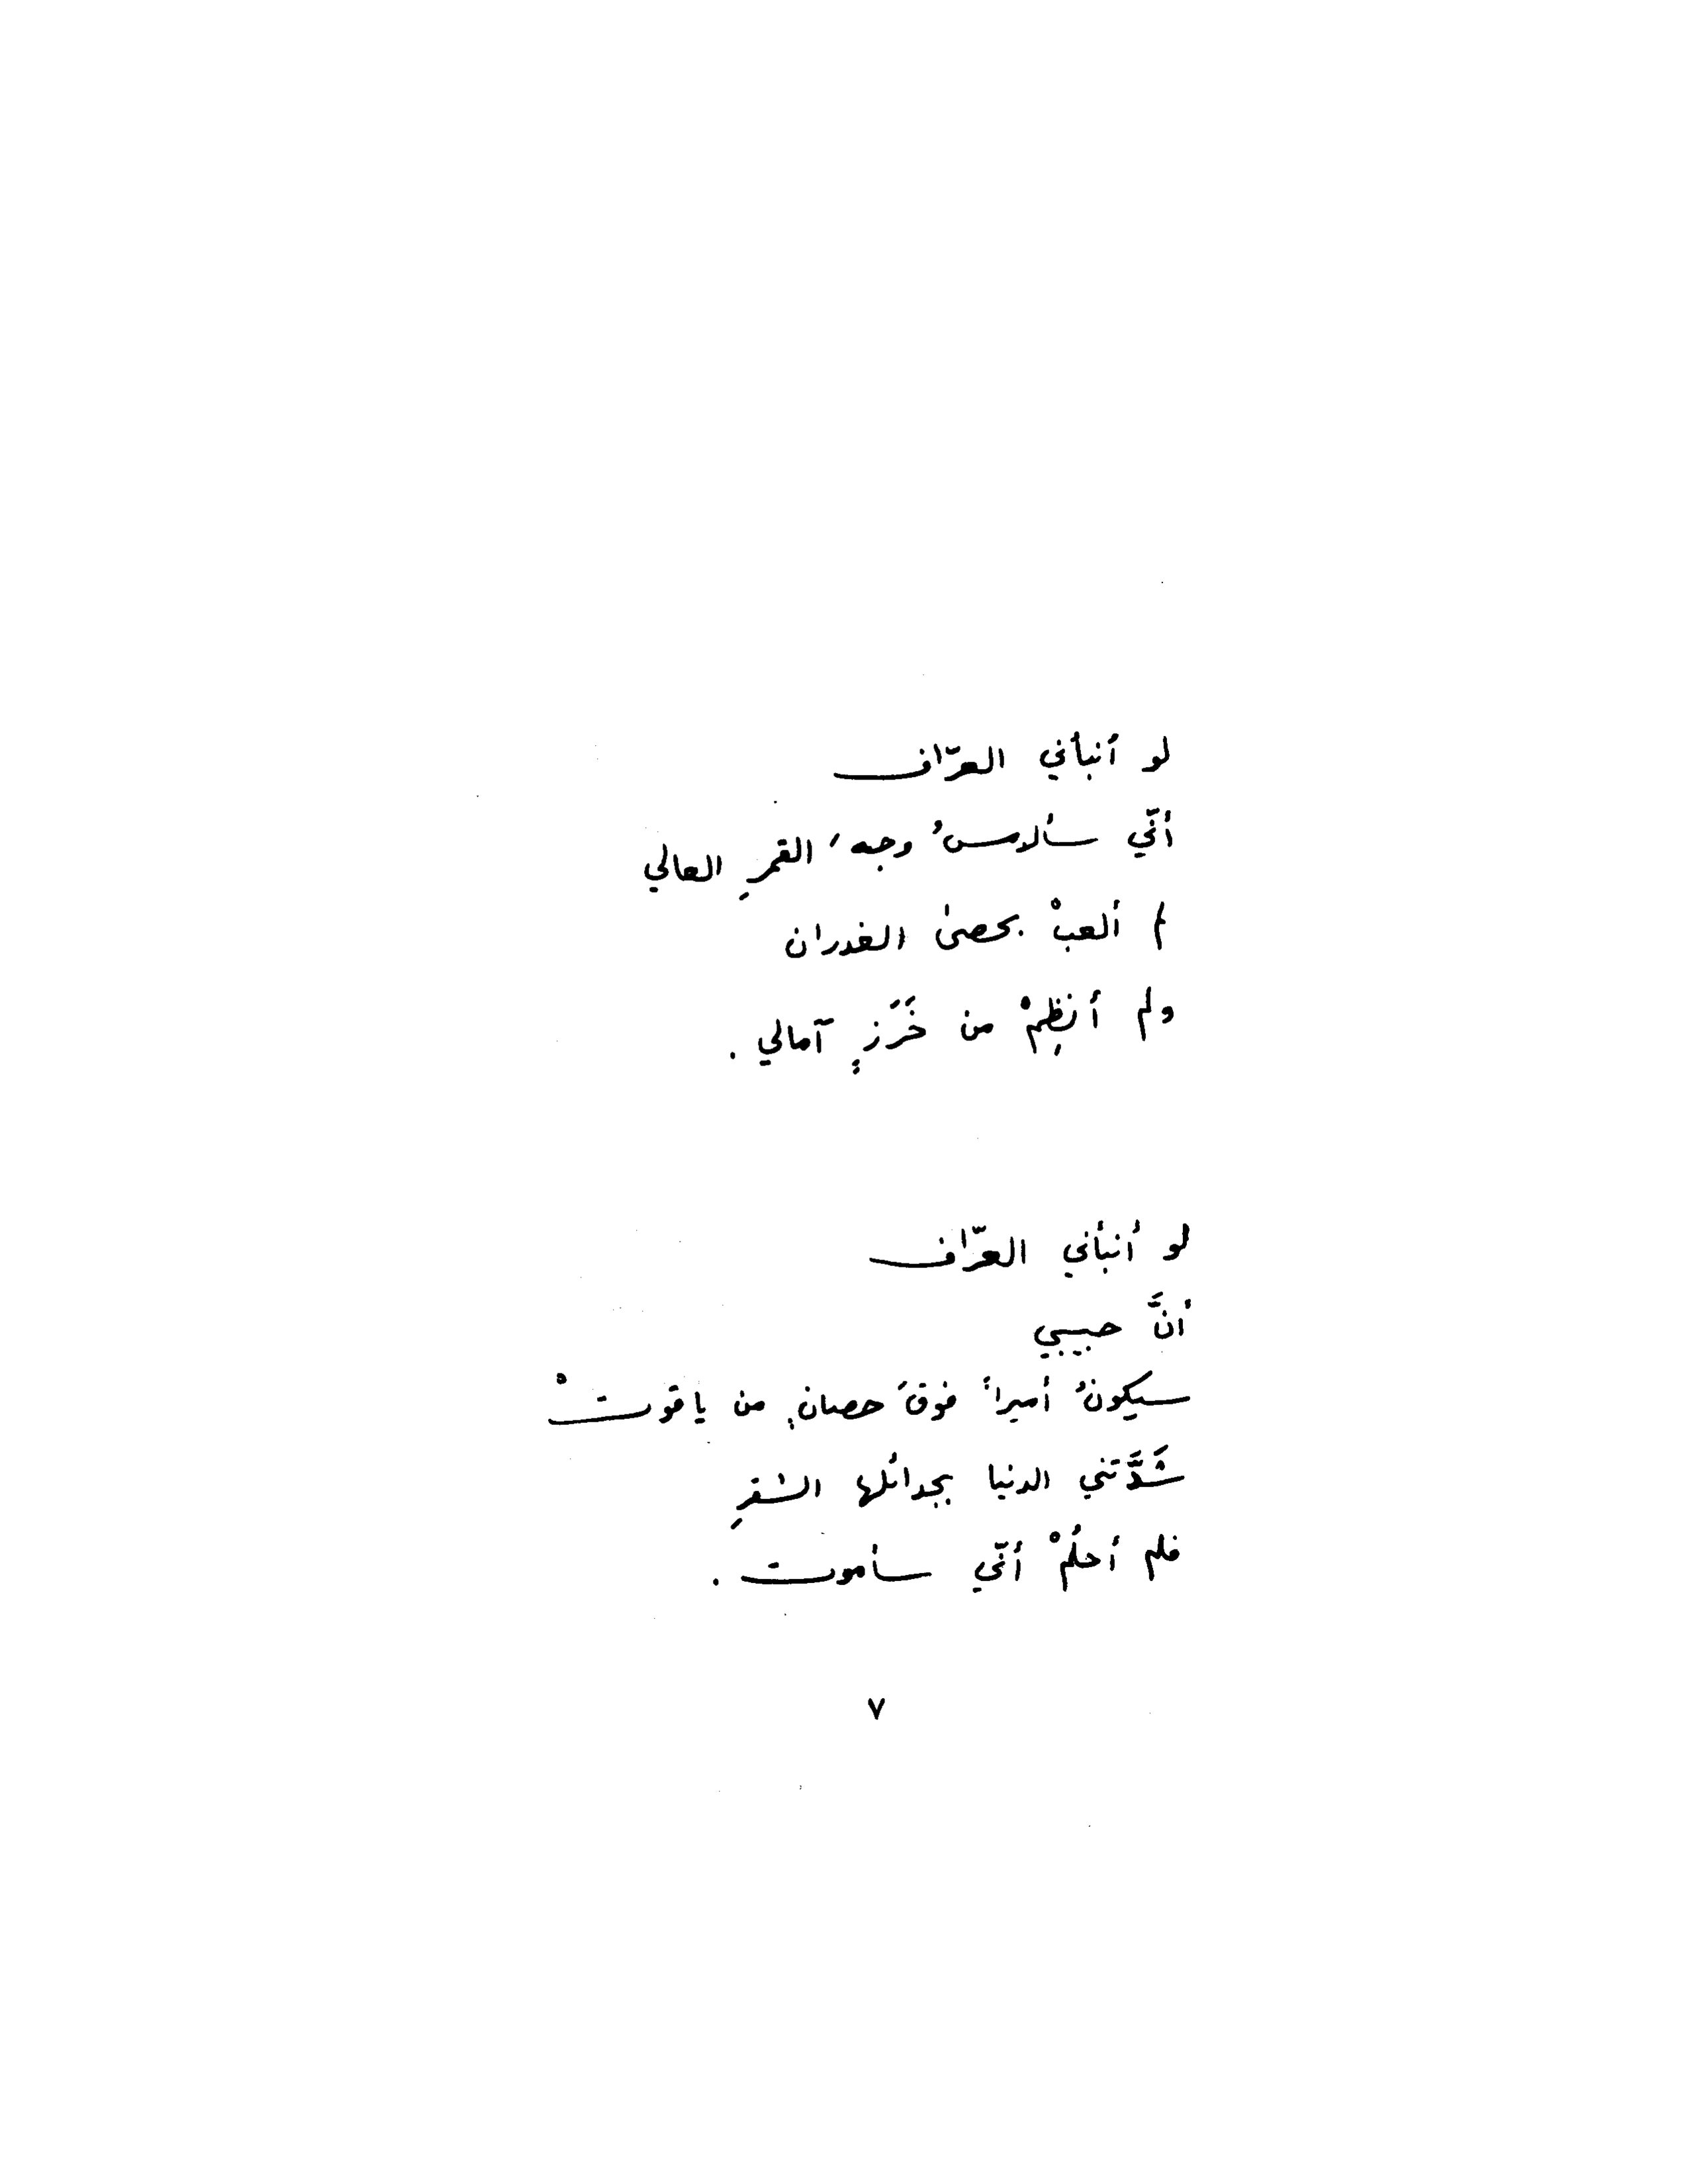 لو أنبأني العرّاف
أنّي سألامسُ وجهَ القمرِ العالي
لم ألعبْ بحصىٰ الغدران
ولم أنظِمْ من خَرَزٍ آمالي .
لو أنبأني العرّاف
أنَّ حبيبي
سيكونُ أميراً فوقَ حصانٍ من ياقوتْ
شَدَّتني الدنيا بجدائلها الشقرِ
فلم أحلُمْ أنّي سأموت .
٧